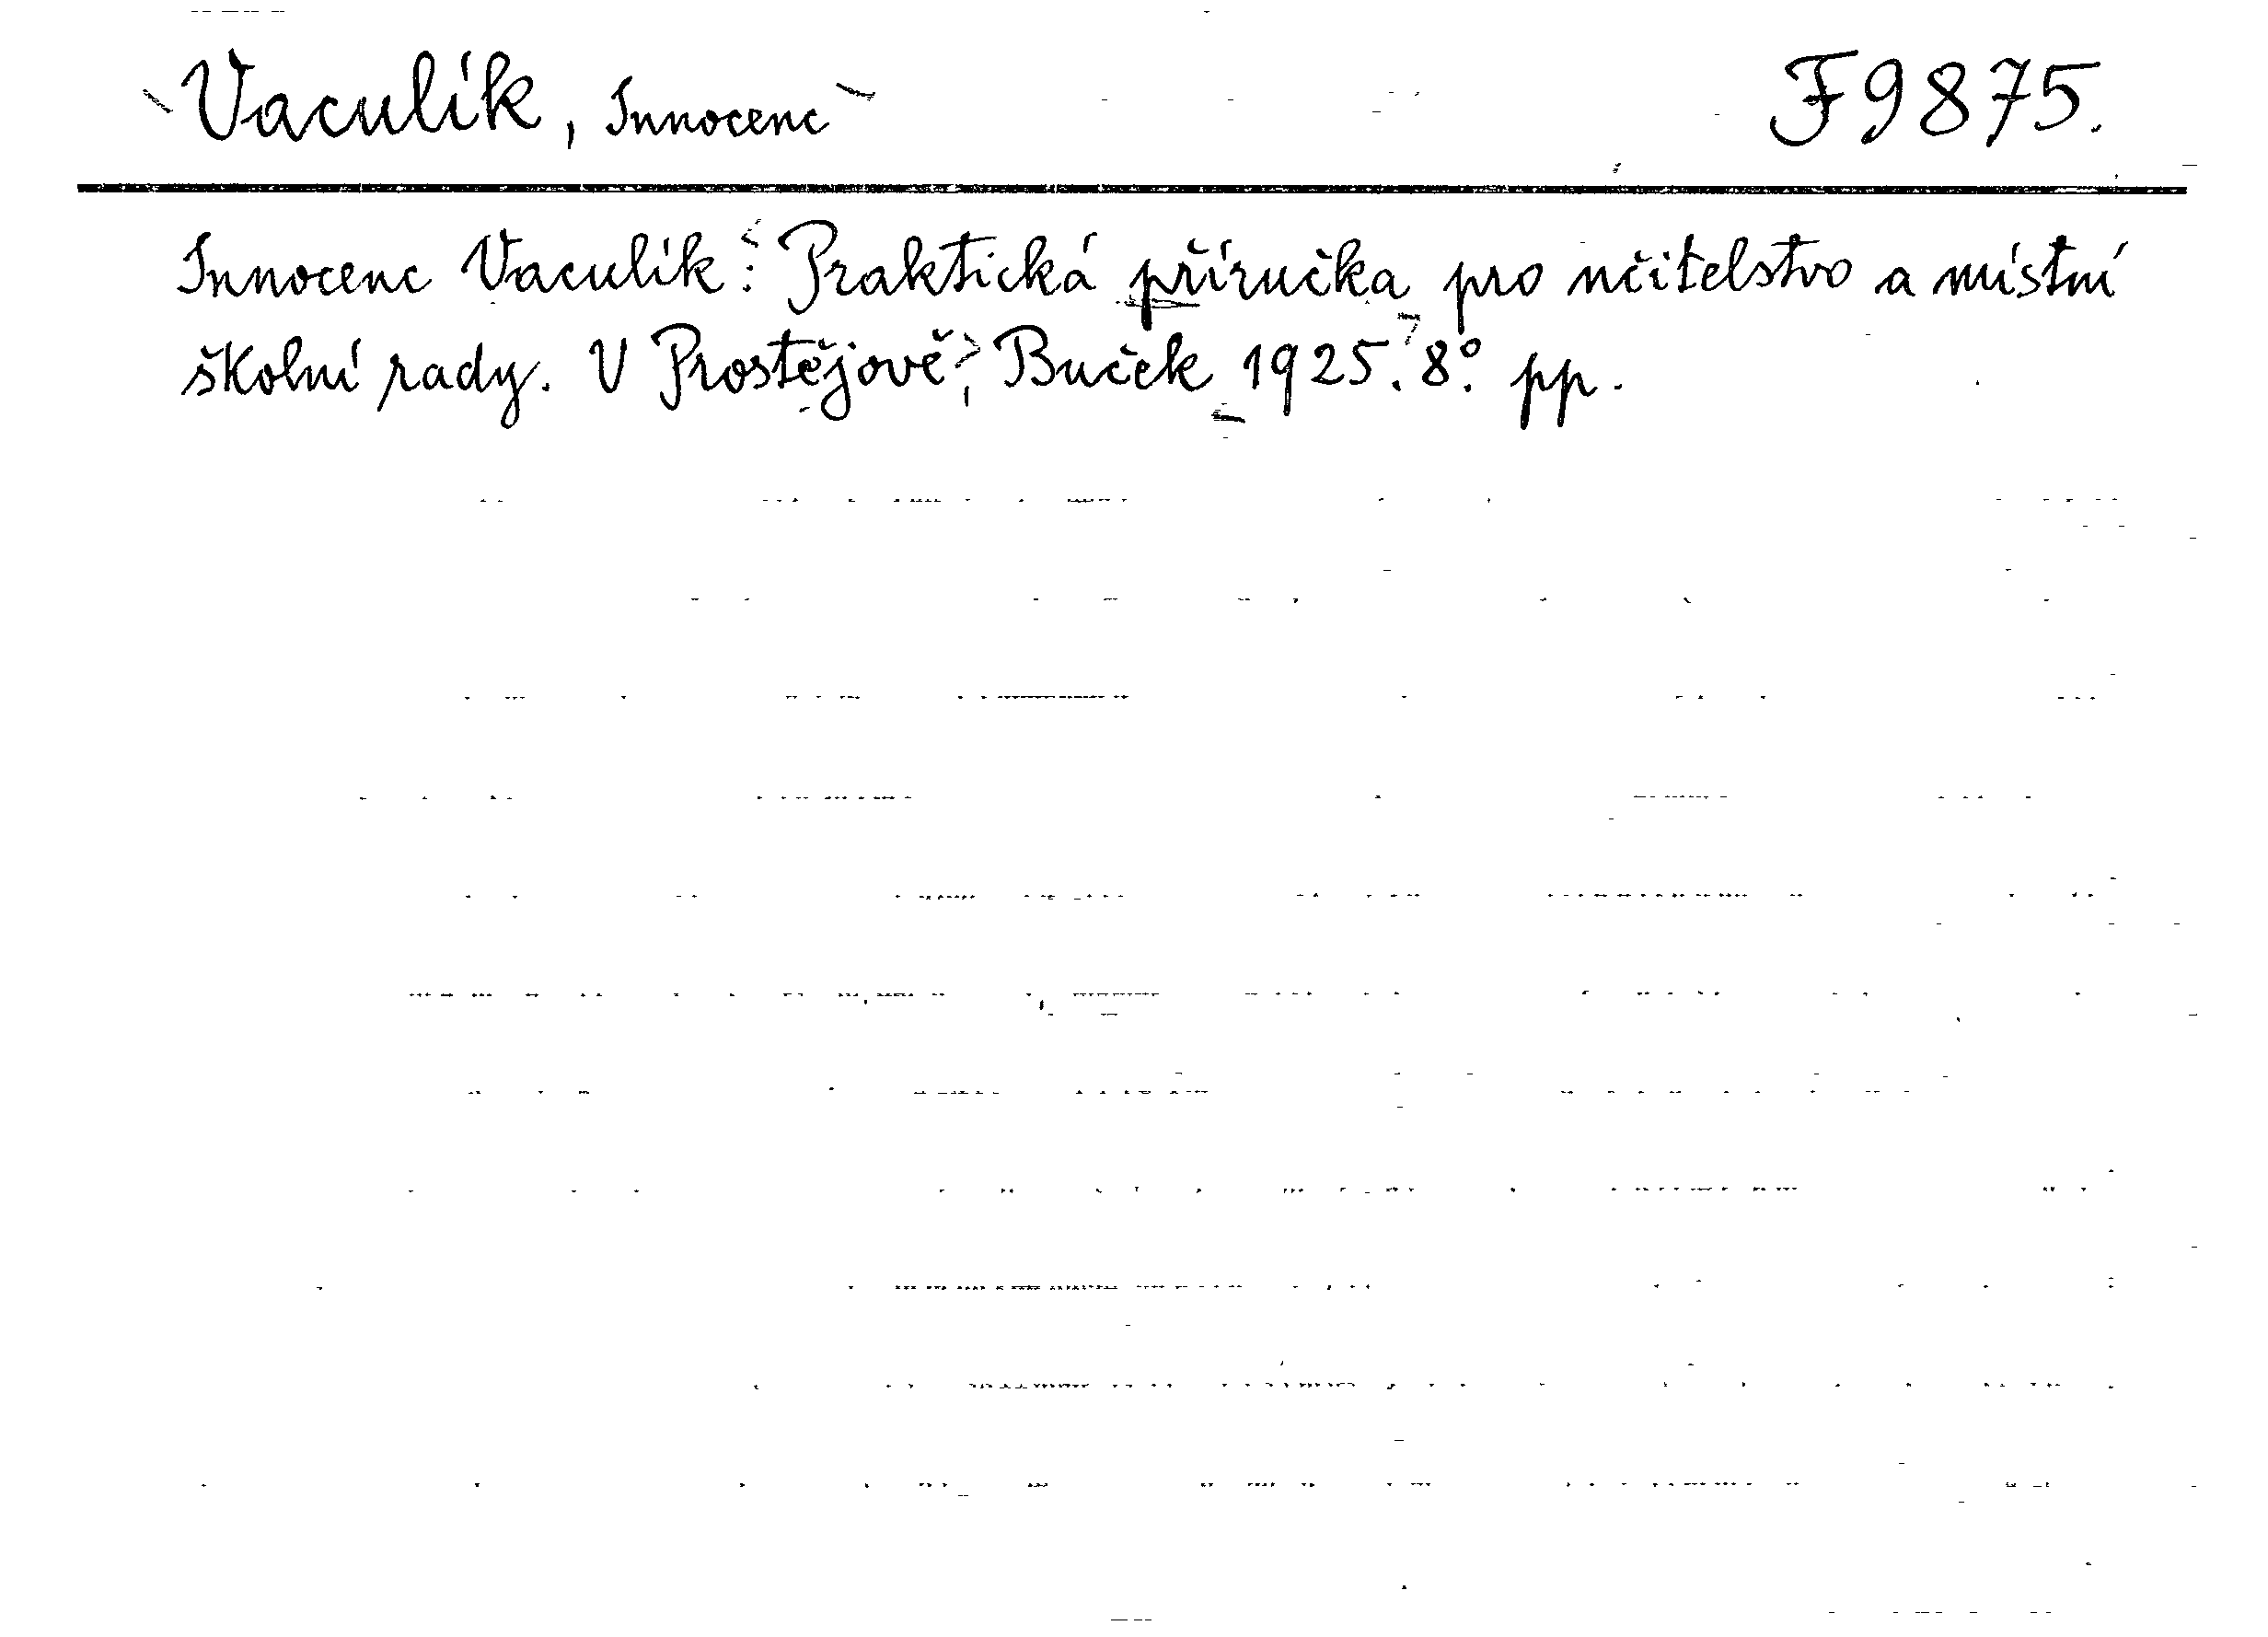 Vaculík, Innocenc F 9875.
Innocenc Vaculík: Praktická příručka pro učitelstvo a místní
školní rady. V Prostějově, Buček 1925. 8°. pp.